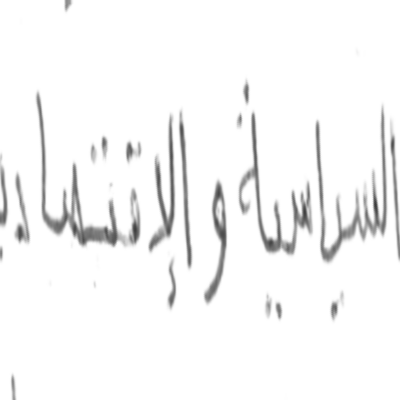 السياسية والإقتصادية